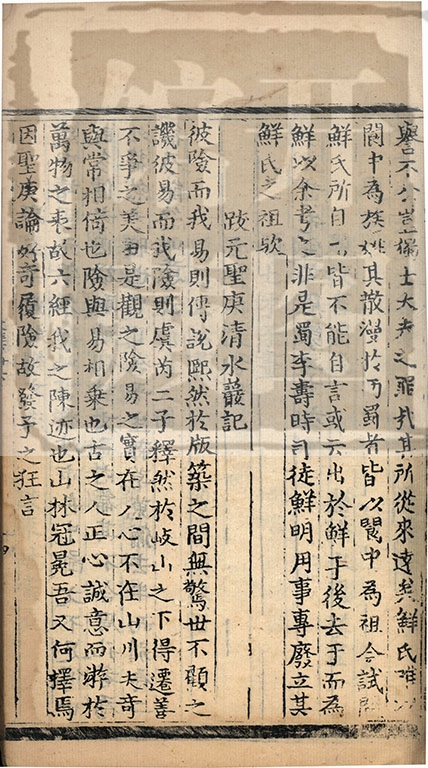 譽不公豈獨士大夫之罪哉其所從來遠矣鮮氏唯
閬中為族姓其散漫於西蜀者皆以閬中為祖今試
鮮氏所自皆不能自言或云出於鮮于後去于而為
鮮以余考之非是蜀李壽時司徒鮮明用事專廢立其
鮮氏之祖歟
跋元聖庚清水巖記
彼險而我易則傅說熙然於版築之間無驚世不顧之
譏彼易而我險則虞芮二子釋然於岐山之下得遷善
不爭之美由是觀之險易之實在人心不在山川夫奇
與常相倚也險與易相乘也古之人正心誠意而游於
萬物之表故六經我之陳迹也山林冠冕吾又何擇焉
因聖庚論好奇履險故發予之狂言